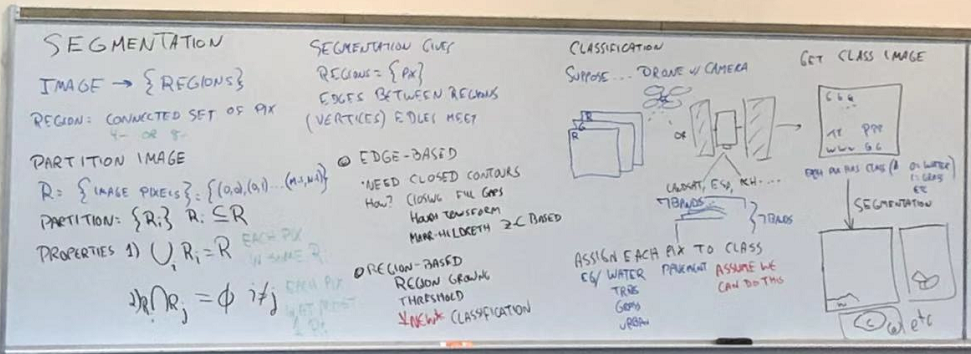 SEGMENTATION
IMAGE → {REGIONS}
REGION: CONNECTED SET OF PIX
4- OR 8-
PARTITION IMAGE
R = {IMAGE PIXELS} = {(0,0),(0,1)...(M-1,N-1)}
PARTITION: {Ri} Ri ⊆ R
PROPERTIES 1) ∪i Ri = R EACH PIX
IN SOME R
2) Ri ∩ Rj = ϕ i≠j EACH PIX
SEGMENTATION GIVES
REGIONS = {PX}
EDGES BETWEEN REGIONS
(VERTICES) EDGES MEET
EDGE-BASED
NEED CLOSED CONTOURS
HOW? CLOSING FILL GAPS
HOUGH TRANSFORM
MARR-HILDRETH ZC BASED
REGION-BASED
REGION GROWING
THRESHOLD
*NEW* CLASSIFICATION
CLASSIFICATION
SUPPOSE... DRONE W/ CAMERA
B
G
R
OR
LANDSAT, ESA,
7 BANDS
7 BANDS
ASSIGN EACH PIX TO CLASS
EG/ WATER PAVEMENT ASSUME WE
CAN DO THIS
TREES
GRASS
URBAN
GET CLASS IMAGE
GGG
TT PPP
WWW GG
EACH PIX HAS CLASS # 0=WATER
1=GRASS
ETC
SEGMENTATION
W
G
etc